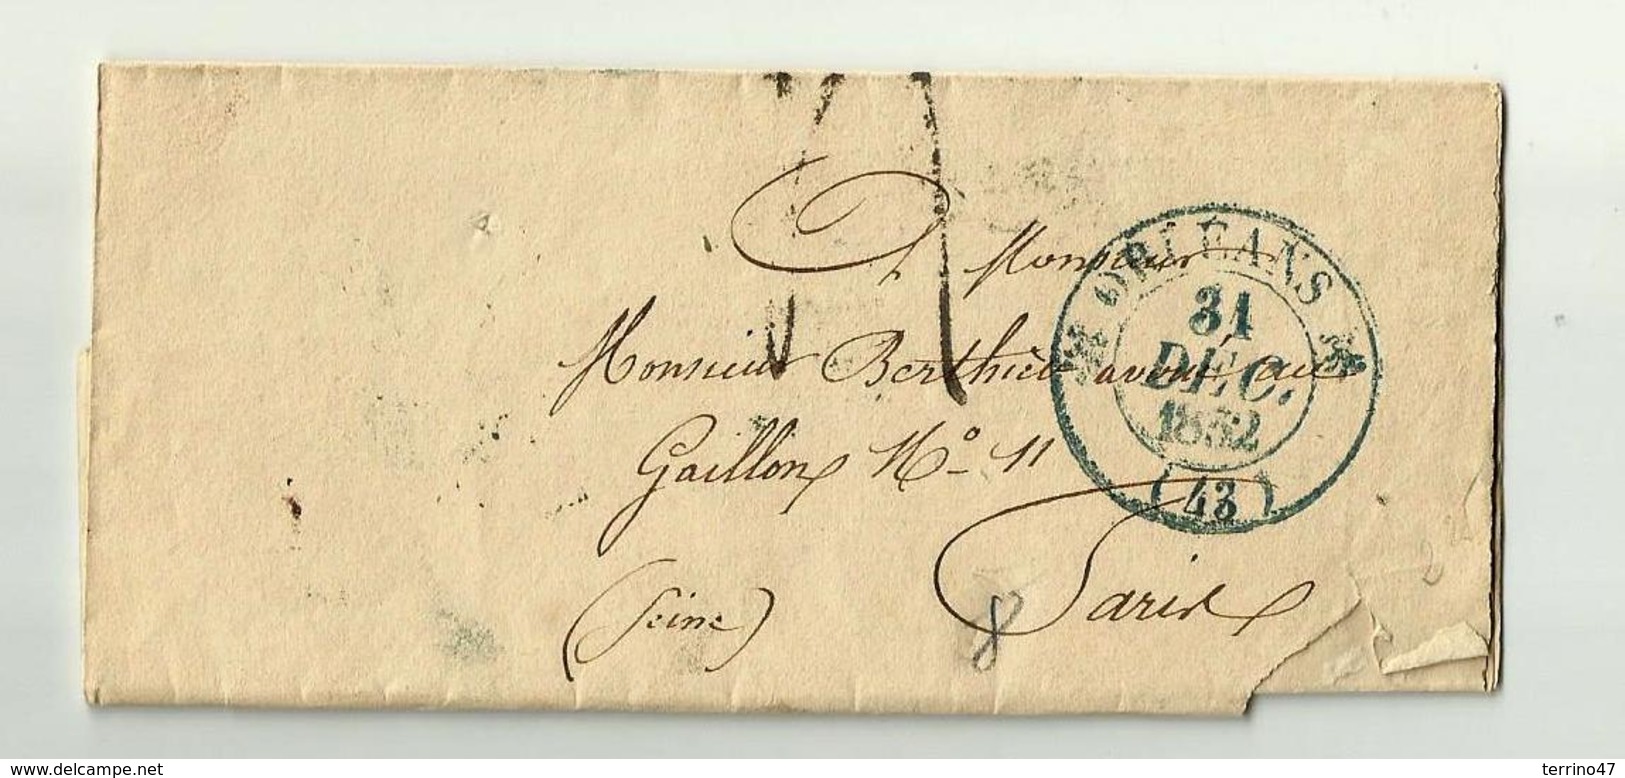 A Monsieur
Monsieur Berthier avoué, rue
Gaillon, No 11
Paris
(Seine)
ORLÉANS
31
DÉC.
1852
(43)
8
www.delcampe.net
terrino47